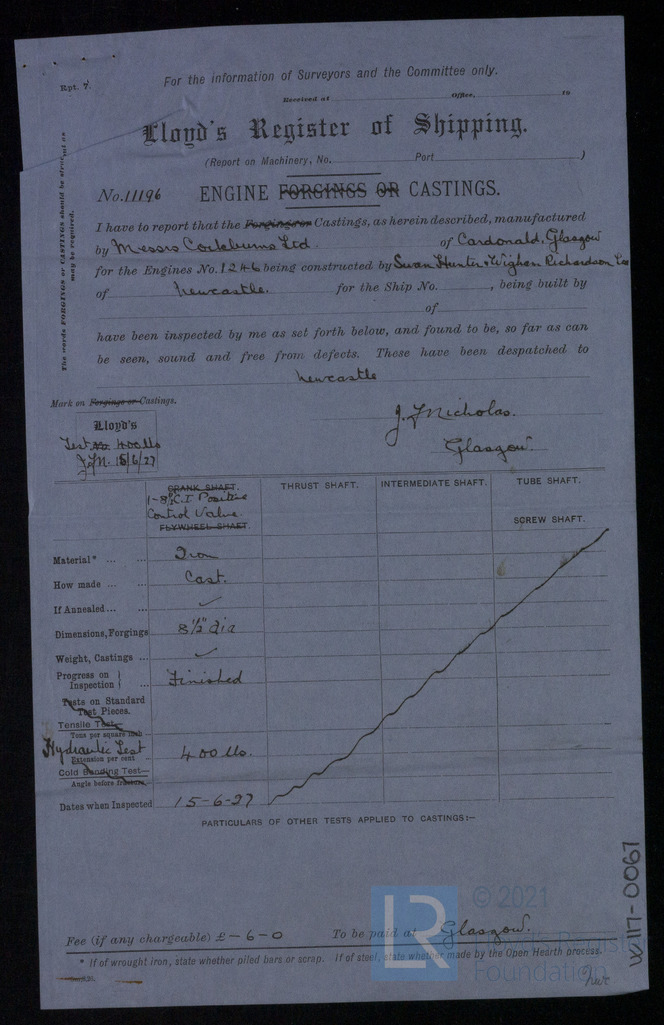 Rpt. 7.
For the information of Surveyors and the Committee only.
Received at Office, 19
Lloyd's Register of Shipping.
(Report on Machinery, No. Port )
No. 11196 ENGINE FORGINGS OR CASTINGS.
The words FORGINGS or CASTINGS should be struck out as
may be required.
I have to report that the Forgings or Castings, as herein described, manufactured
by Messrs Cockburns Ltd of Cardonald, Glasgow
for the Engines No. 1246 being constructed by Swan Hunter & Wigham Richardson Ltd
of Newcastle. for the Ship No. , being built by
of
have been inspected by me as set forth below, and found to be, so far as can
be seen, sound and free from defects. These have been despatched to
Newcastle
Mark on Forgings or Castings.
J. F. Nicholas.
Glasgow.
Lloyd's
Test No. 400 lbs
J.F.N. 15/6/27
CRANK SHAFT. THRUST SHAFT. INTERMEDIATE SHAFT. TUBE SHAFT.
1-8½" C.I. Positive
Control Valve. SCREW SHAFT.
FLYWHEEL SHAFT.
Material* ... ... Iron
How made ... ... Cast.
If Annealed ... ... ✓
Dimensions, Forgings 8½" dia
Weight, Castings ... ✓
Progress on Inspection } ... Finished
Tests on Standard
Test Pieces.
Tensile Test—
Tons per square inch
Hydraulic Test 400 lbs.
Extension per cent
Cold Bending Test—
Angle before fracture
Dates when Inspected 15-6-27
PARTICULARS OF OTHER TESTS APPLIED TO CASTINGS:—
Fee (if any chargeable) £ – 6 – 0 To be paid at Glasgow.
* If of wrought iron, state whether piled bars or scrap. If of steel, state whether made by the Open Hearth process.
W117-0067
LR
© 2021
Lloyd's Register
Foundation